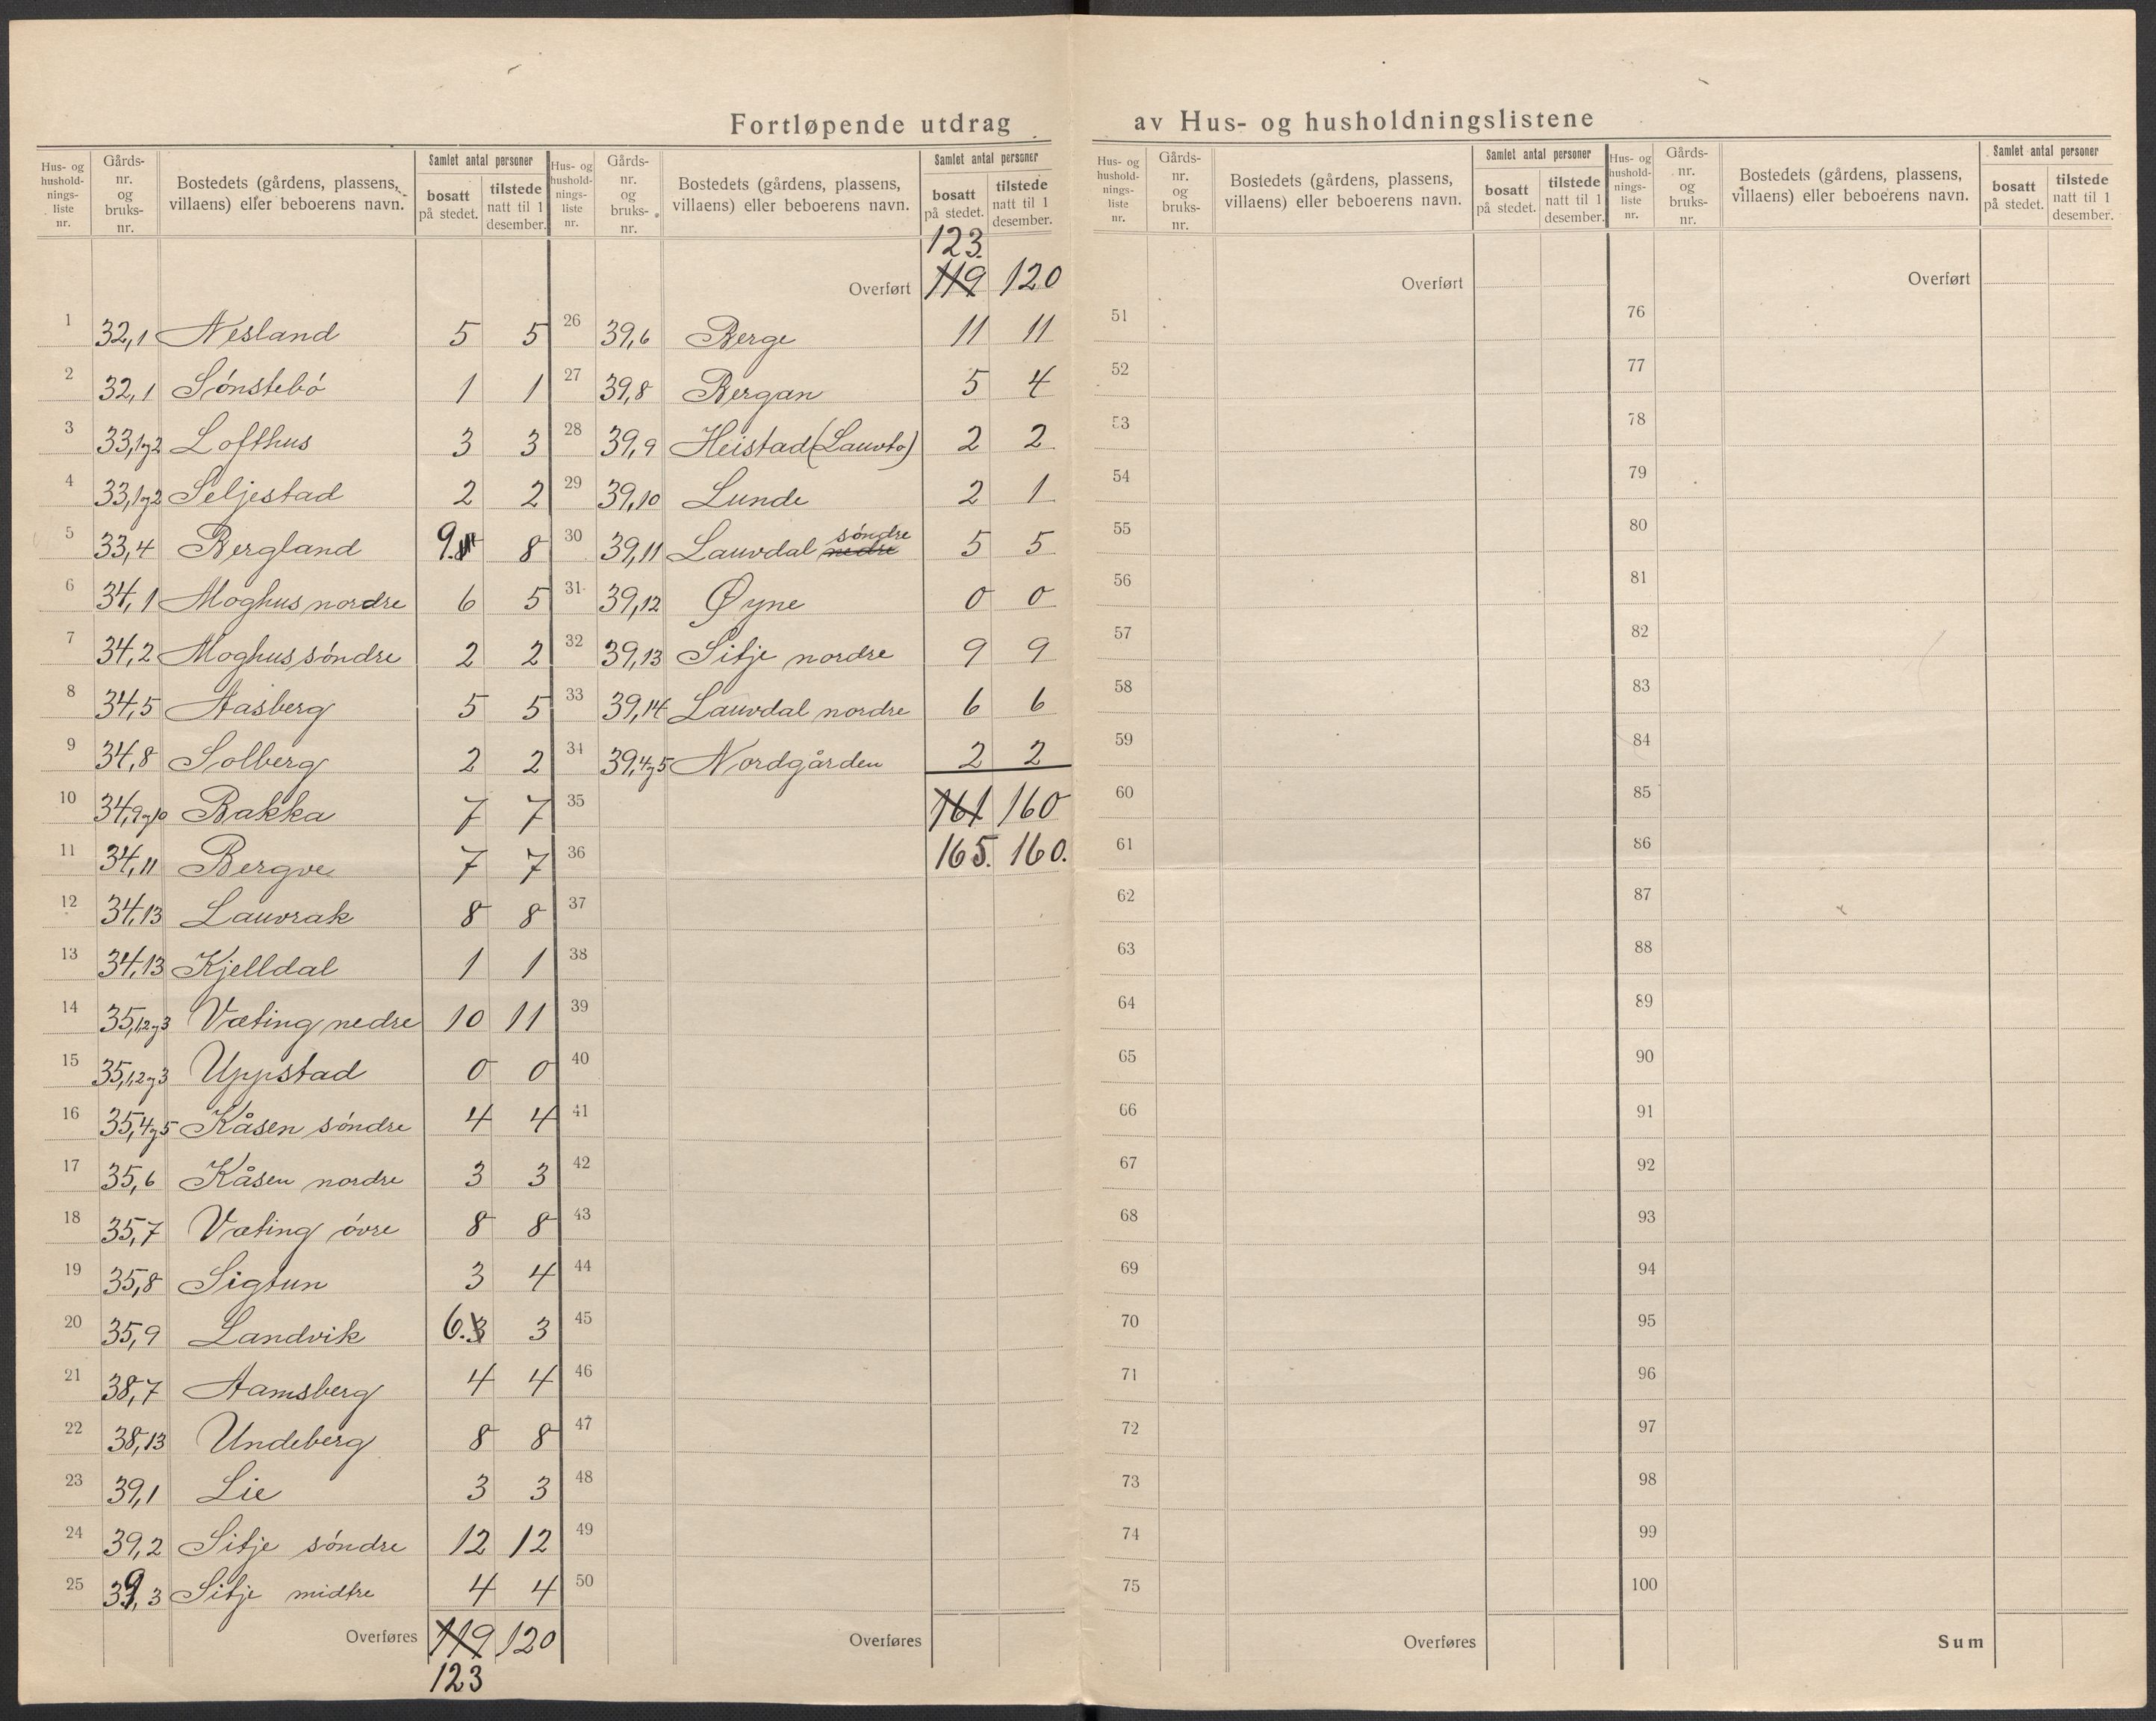 Fortløpende utdrag av Hus- og husholdningslistene
Hus- og husholdningsliste nr. | Gårds- nr. og bruks- nr. | Bostedets (gårdens, plassens, villaens) eller beboerens navn. | Samlet antal personer bosatt på stedet. | tilstede natt til 1 desember.
1 32,1 Nesland 5 5
2 32,1 Sónstebó 1 1
3 33,1 og 2 Lofthus 3 3
4 33,1 og 2 Seljestad 2 2
5 33,4 Bergland 9. 8
6 34,1 Moghus nordre 6 5
7 34,2 Moghus sóndre 2 2
8 34,5 Aasberg 5 5
9 34,8 Solberg 2 2
10 34,9 og 10 Bakka 7 7
11 34,11 Bergve 7 7
12 34,13 Lauvrak 8 8
13 34,13 Kjelldal 1 1
14 35,1,2 og 3 Væting nedre 10 11
15 35,1,2 og 3 Uppstad 0 0
16 35,4 og 5 Kåsen sóndre 4 4
17 35,6 Kåsen nordre 3 3
18 35,7 Væting óvre 8 8
19 35,8 Sigtun 3 4
20 35,9 Landvik 6. 3 3
21 38,7 Aamsberg 4 4
22 38,13 Undeberg 8 8
23 39,1 Lie 3 3
24 39,2 Sitje sóndre 12 12
25 39,3 Sitje midtre 4 4
Overføres 119 120
123
Hus- og husholdningsliste nr. | Gårds- nr. og bruks- nr. | Bostedets (gårdens, plassens, villaens) eller beboerens navn. | Samlet antal personer bosatt på stedet. | tilstede natt til 1 desember.
123.
Overført 119 120
26 39,6 Berge 11 11
27 39,8 Bergan 5 4
28 39,9 Heistad (Lauvto) 2 2
29 39,10 Lunde 2 1
30 39,11 Lauvdal nedre sóndre 5 5
31 39,12 Øyne 0 0
32 39,13 Sitje nordre 9 9
33 39,14 Lauvdal nordre 6 6
34 39,4 og 5 Nordgården 2 2
35 161 160
36 165. 160.
37
38
39
40
41
42
43
44
45
46
47
48
49
50
Overføres
Hus- og husholdningsliste nr. | Gårds- nr. og bruks- nr. | Bostedets (gårdens, plassens, villaens) eller beboerens navn. | Samlet antal personer bosatt på stedet. | tilstede natt til 1 desember.
Overført
51
52
53
54
55
56
57
58
59
60
61
62
63
64
65
66
67
68
69
70
71
72
73
74
75
Overføres
Hus- og husholdningsliste nr. | Gårds- nr. og bruks- nr. | Bostedets (gårdens, plassens, villaens) eller beboerens navn. | Samlet antal personer bosatt på stedet. | tilstede natt til 1 desember.
Overført
76
77
78
79
80
81
82
83
84
85
86
87
88
89
90
91
92
93
94
95
96
97
98
99
100
Sum